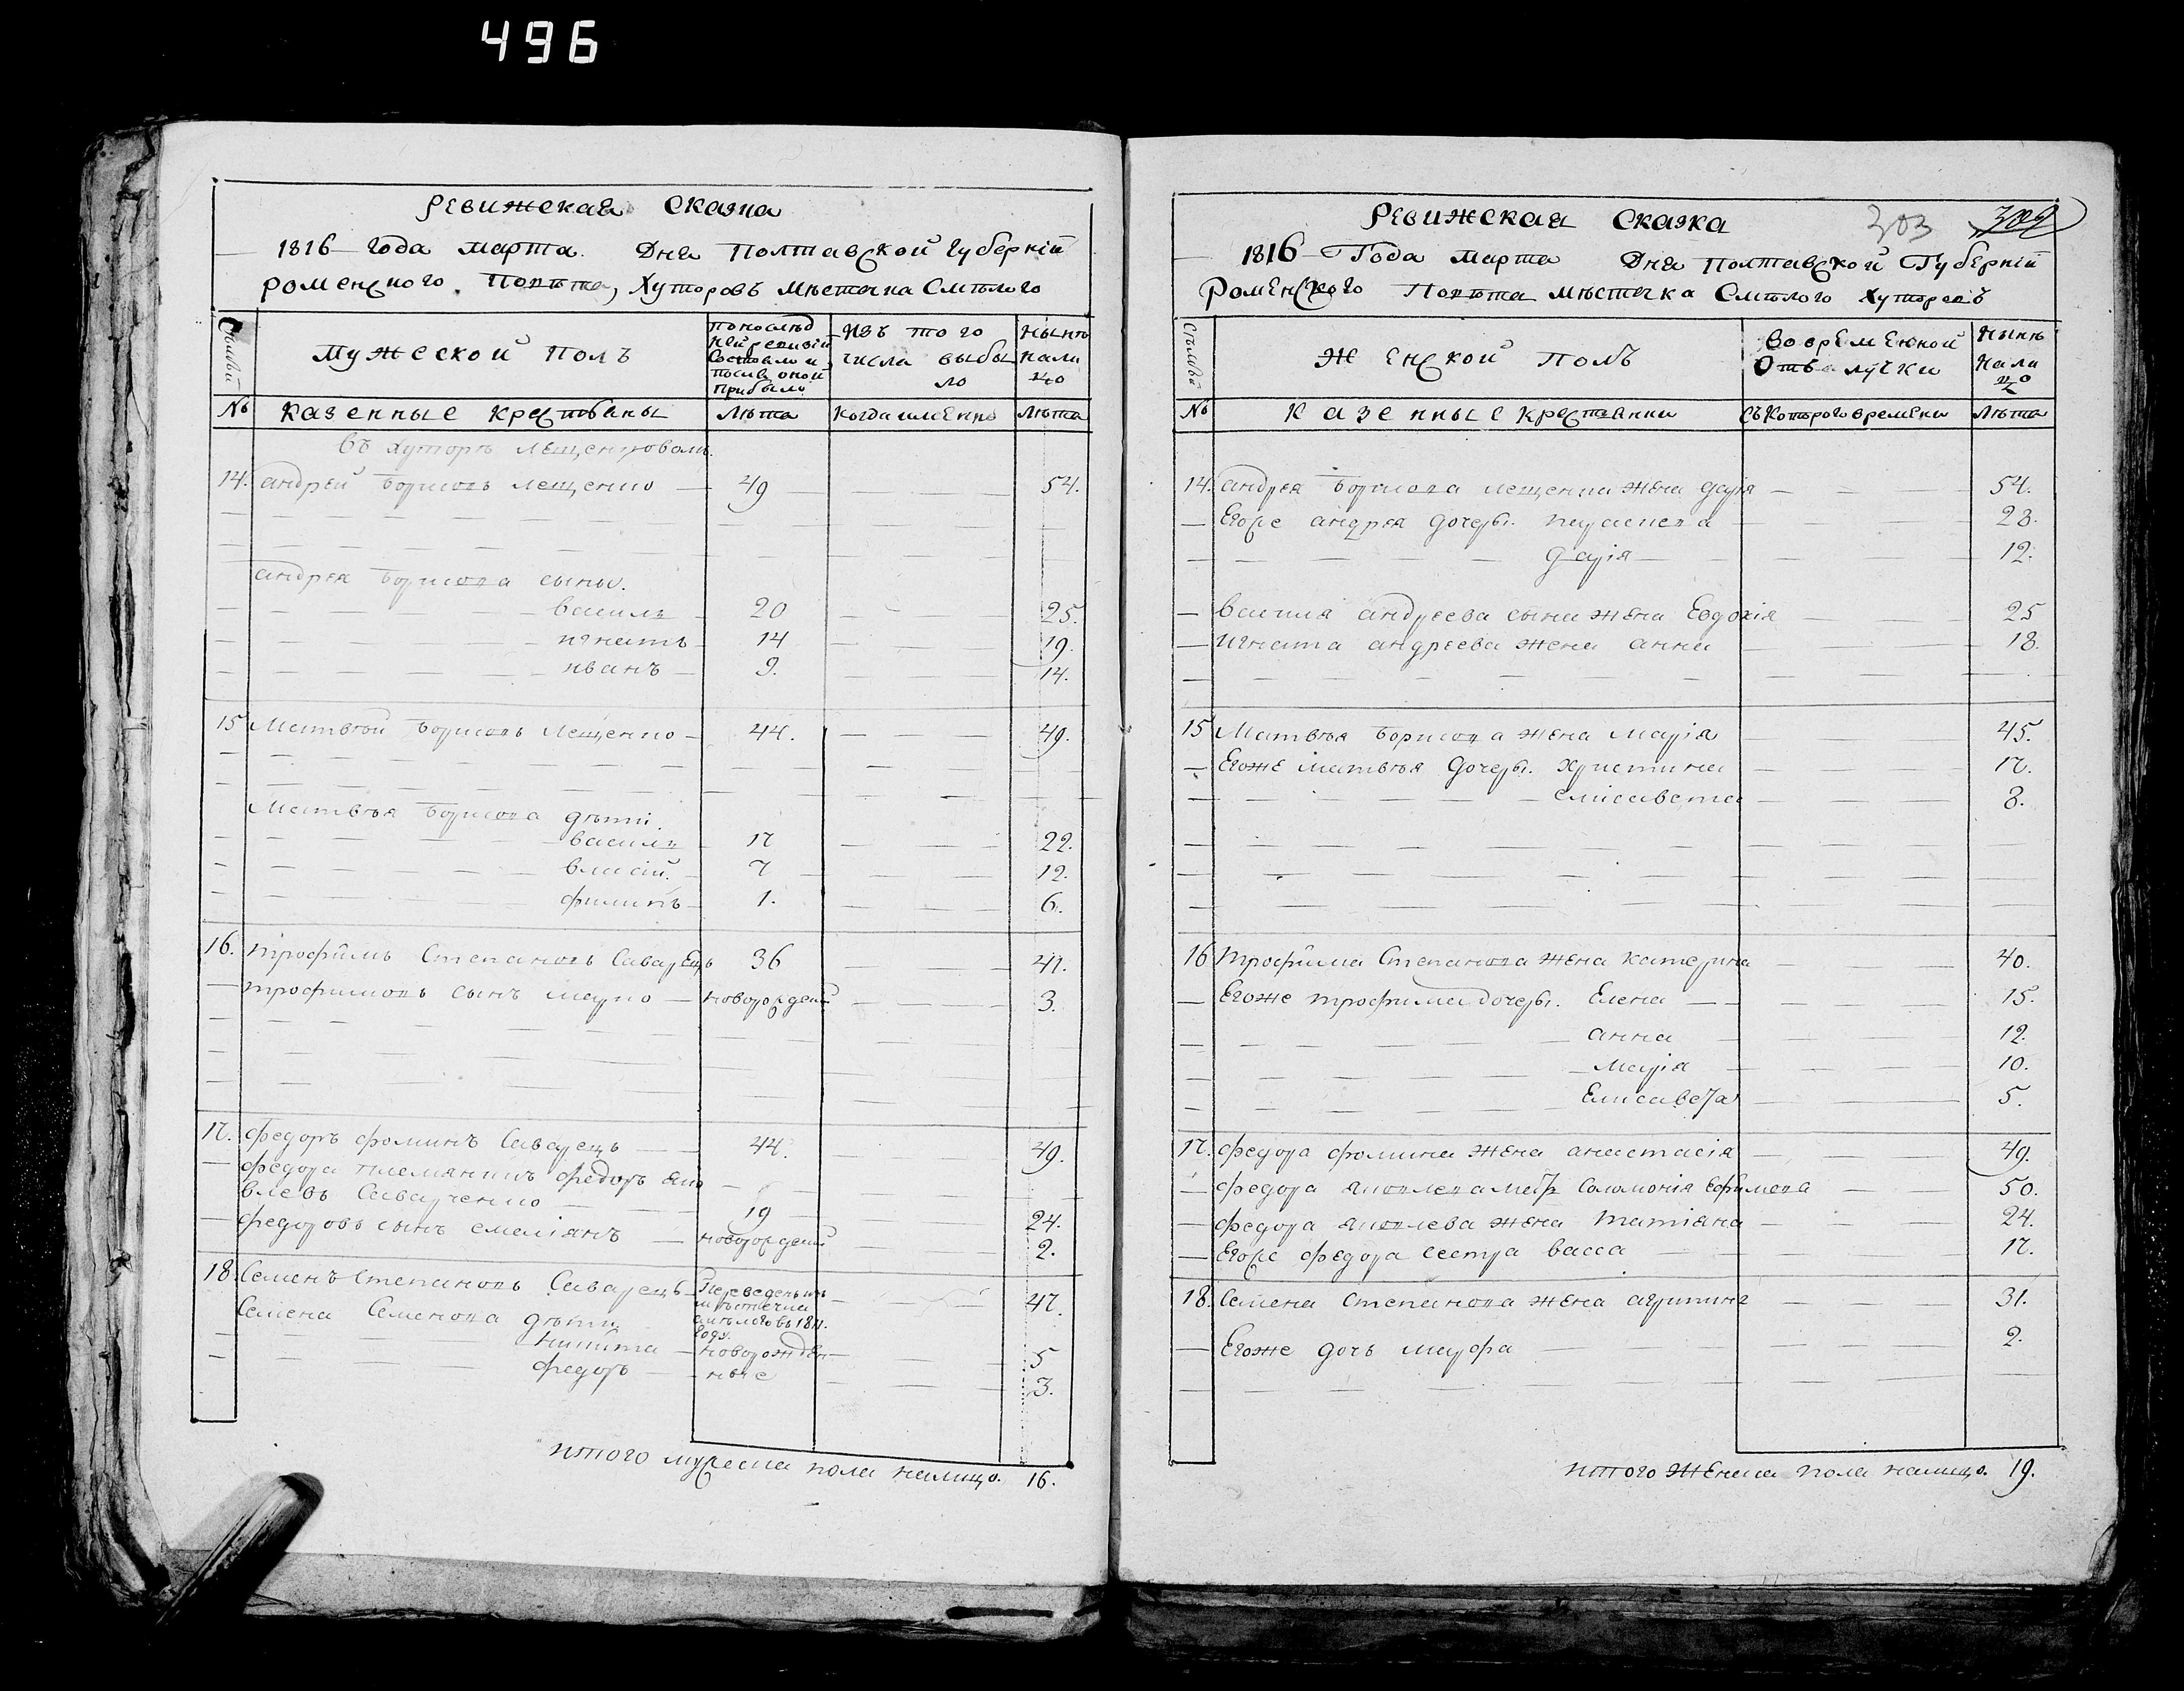 496
Ревижская Сказка
1816 года марта. Дня Полтавской Губерніи
роменского Повѣта, Хуторовъ мѣстечка Смѣлого
Съмьи
Мужеской Полъ
По послѣд
ней ревизіи
Состояло и
после оной
прибыло
Изъ того
числа выбы
ло
Нынѣ
нали
цо
№ казенные крестьяны Лѣта когда именно Лѣта
Въ хуторѣ Лещенковом
14. андрей Борисовъ Лещенко 49 54.
андрея Борисова сыны.
василь 20 25.
игнатъ 14 19.
иванъ 9. 14.
15 Матвѣй Борисовъ Лещенко 44. 49.
Матвѣя Борисова дѣти.
василь 17 22.
власій. 7 12.
филипъ 1. 6.
16. трофимъ Степановъ Саварецъ 36 41.
трофимовъ сынъ марко новорожденій 3.
17. федоръ фоминъ Саварецъ 44. 49.
федора племянникъ федоръ яко
влевъ Саварченко 19 24.
федоровъ сынъ емеліянъ новорожденій 2.
18. Семенъ Степановъ Саварецъ Переведенъ изъ
мѣстечка
смѣлого въ 1811.
году. 47.
Семена Семенова дѣти
никита новорожден 5
федоръ ные 3.
итого мужеска пола налицо. 16.
Ревижская Сказка 303 302
1816 Года Марта Дня Полтавской Губерніи
Роменского Повѣта мѣстечка Смѣлого Хуторовъ
Съмьи
Женской полъ
Во временной
Отълучки
Нынѣ
нали
цо
№ казенные крестянки Съ Которого времени Лѣта
14. андрея Борисова лещенка жена дарія 54.
Егоже андрея дочеры. параскева 23.
дарія 12.
василия андреева сына жена Евдокія 25
игната андреева жена анна 18.
15 Матвѣя Борисова жена марія 45.
Егоже матвѣя дочеры. христина 17.
елисавета 8.
16 трофима Степанова жена катерина 40.
Егоже трофима дочеры. Елена 15.
анна 12.
марія 10.
Елисавета 5.
17. федора фомина жена анастасія 49.
федора яковлева матъ Соломонія Ефимова 50.
федора яковлева жена татіяна 24.
Егоже федора сестра васса 17.
18. Семена Степанова жена агрипина 31.
Егоже дочь марфа 2.
итого женска пола налицо. 19.